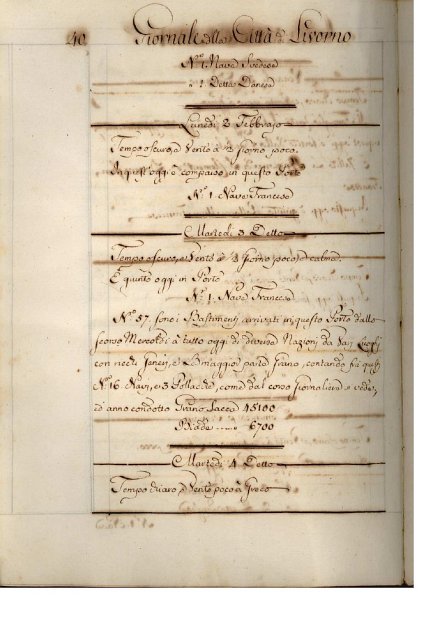 40 Giornale della Città di Livorno
N.º 1. Nave Svedese
" 1. Detta Danese
Lunedì 2 Febbrajo
Tempo oscuro, e Vento à giorno poco.
In quest'oggi è comparso in questo Porto
N.º 1. Nave Francese
Martedì 3 Detto
Tempo oscuro, e Vento à giorno poco, e calma.
È giunto oggi in Porto
N.º 1. Nave Francese
N.º 57, sono i Bastimenti arrivati in questo Porto dallo
scorso Mercoldì a tutto oggi di diverse Nazioni da Varj Luoghi
con merci Generi, e maggior parte Grano, contando fra questi
N.º 16 Navi, e 3 Pollacche, come dal corso Giornaliero si vede,
ed anno condotto Grano Sacca 45100
Biade 6700
Martedì 4 Detto
Tempo chiaro, e Vento poco à Greco